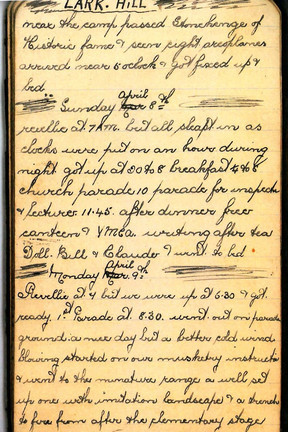 LARK. HILL
near the camp passed Stonehenge of
Historic fame & seen eight areoplanes
arrived near 5 oclock & got fixed up &
bed.
Sunday April 8th
reveille at 7AM. but all slept in as
clocks were put on an hours during
night got up at 20 to 8 breakfast ¼ to 8
church parade 10 parade for inspecti
& lecture. 11.45. after dinner free
canteen & YMCA. writing after tea
Doll. Bill & Claude & went to bed
Monday April 9th.
Revellie at 4 but we were up at 6.30 & got
ready. 1st Parade at 8.30. went out on parade
ground. a nice day but a better cold wind
blowing started on our musketry instruct
& went to the minature range a well set
up one with imitation landscape & a trench
to fire from after the elementary stage